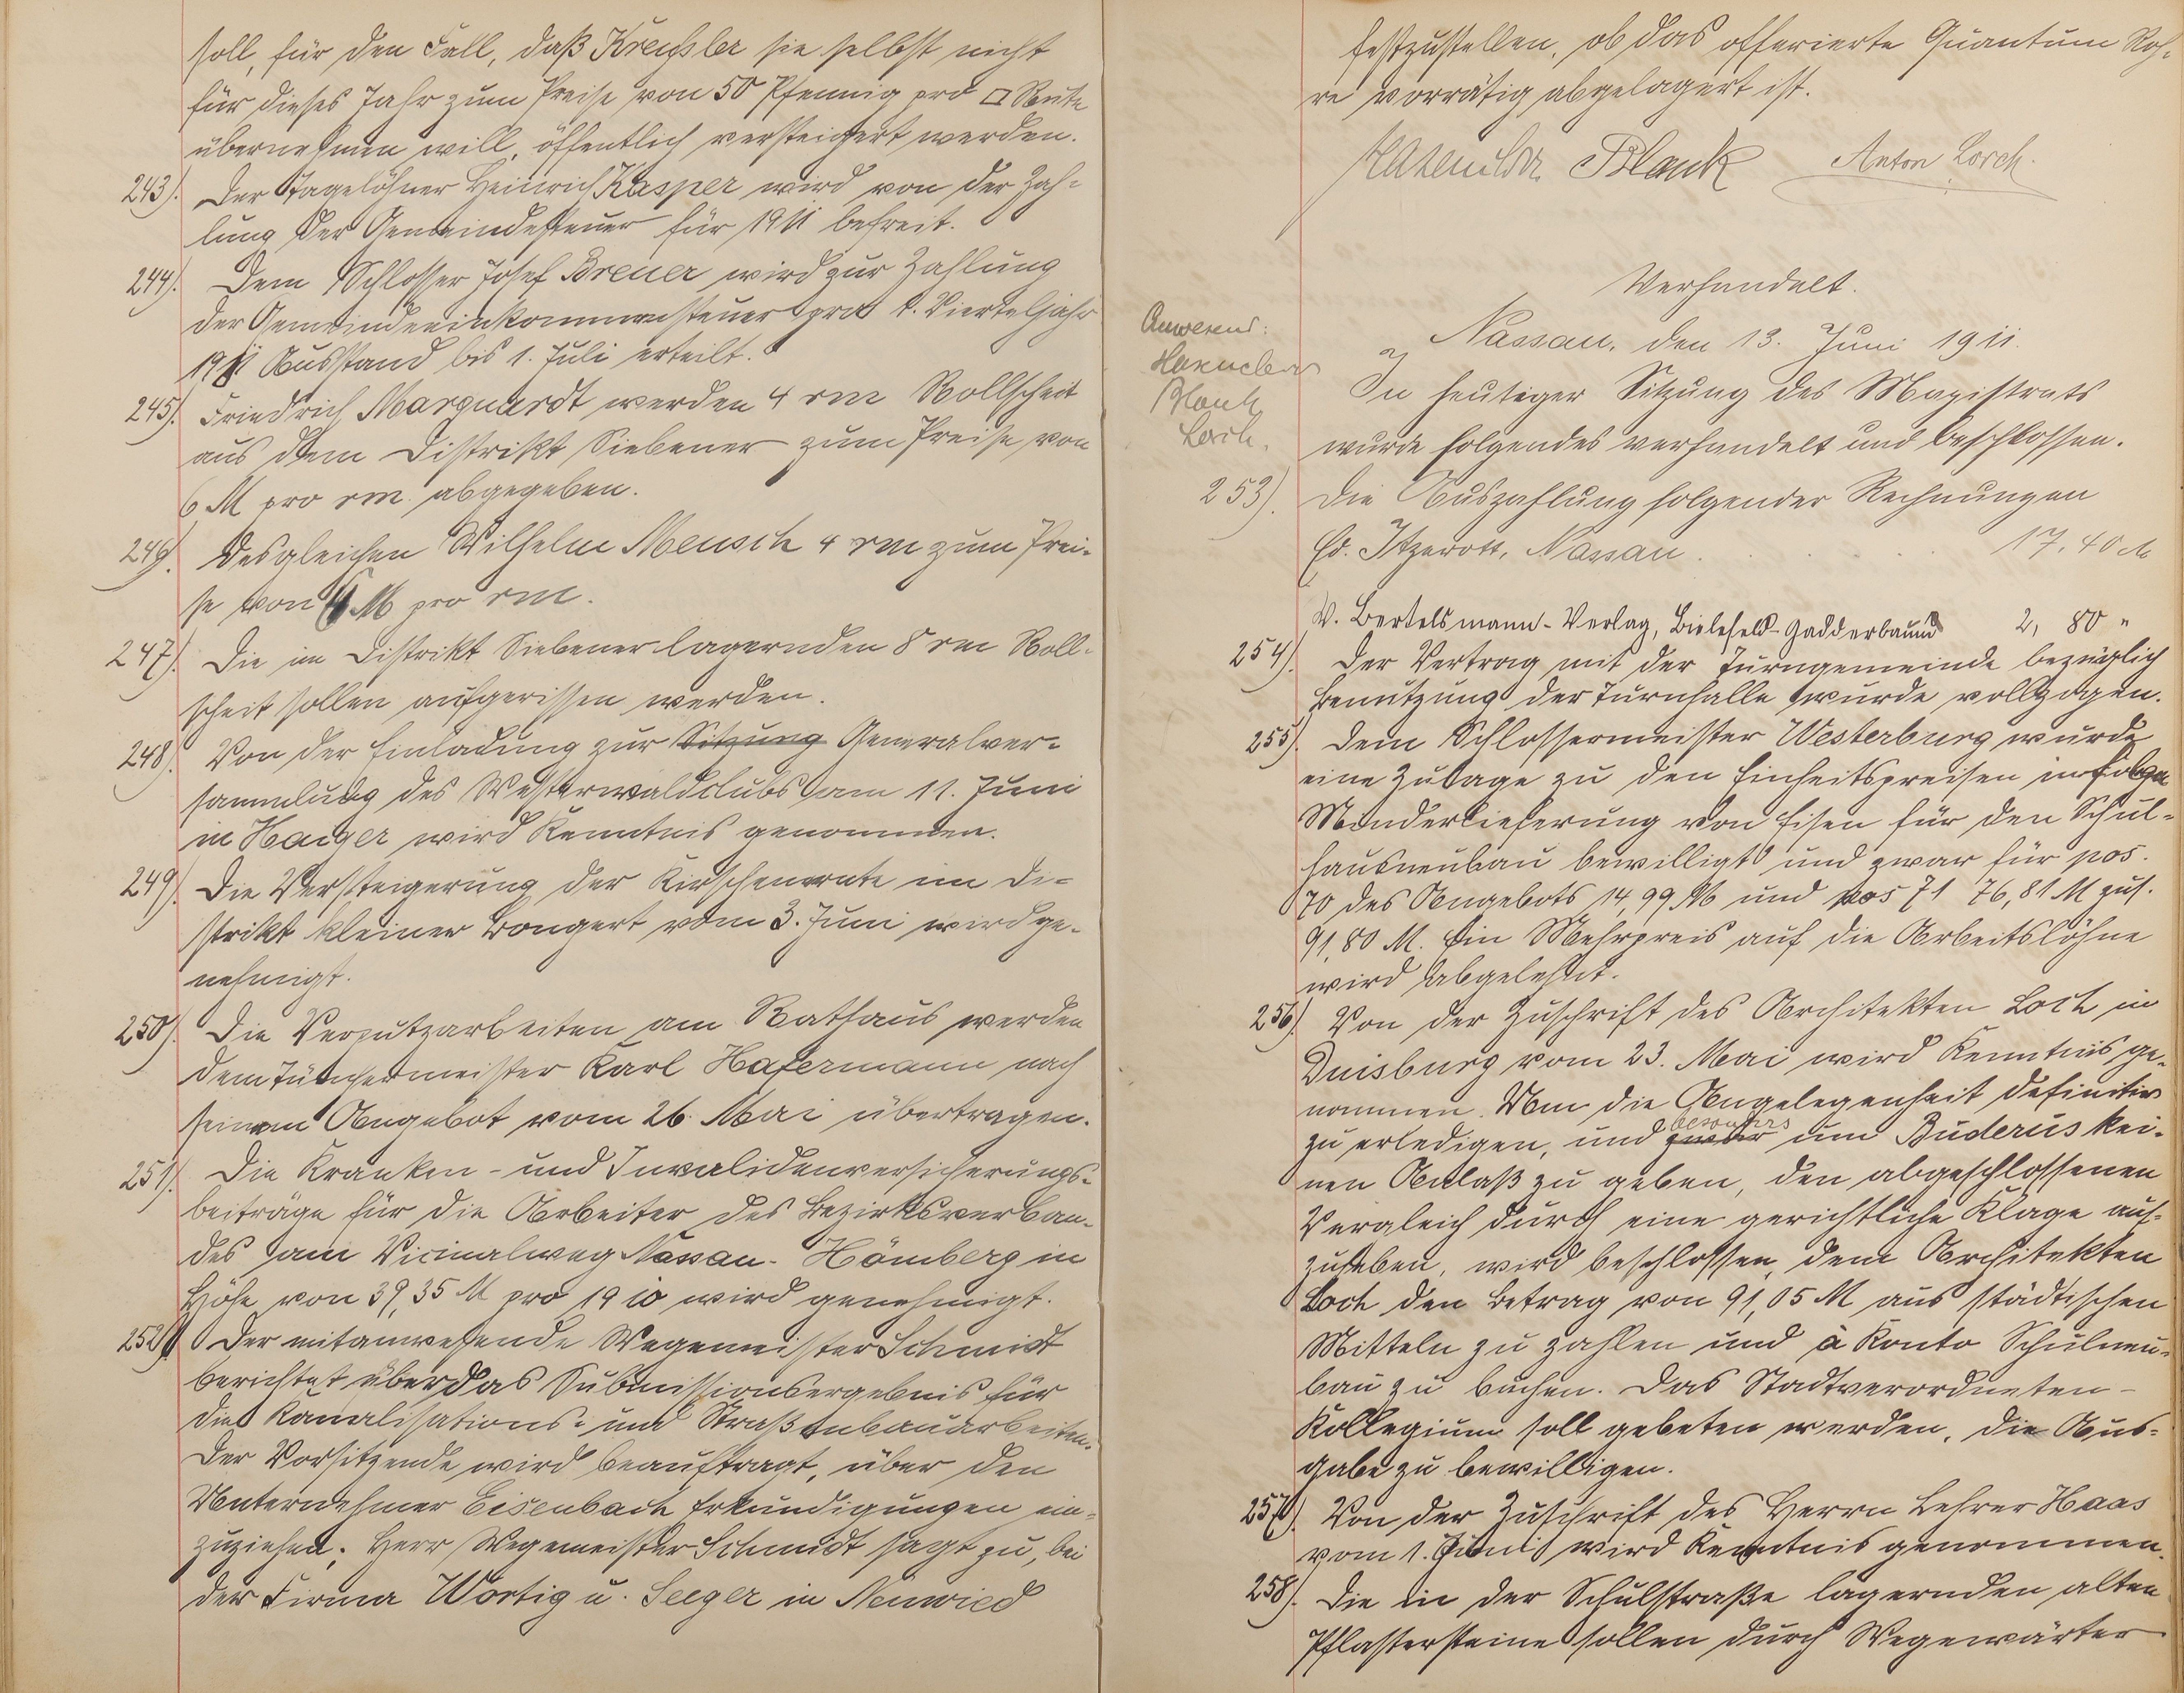 soll, für den Fall, daß Kreußler sie selbst nicht
für dieses Jahr zum Preise von 50 Pfennig pro □ Rute
übernehmen will, öffentlich versteigert werden.
243). Der Tagelöhner Heinrich Kasper wird von der Zah-
lung der Gemeindesteuer für 1911 befreit.
244). Dem Schlosser Josef Breuer wird zur Zahlung
der Gemeindeeinkommensteuer pro 1. Vierteljahr
1911 Ausstand bis 1. Juli erteilt.
245). Friedrich Marquardt werden 4 rm Rollscheit
aus dem Distrikt Siebener zum Preise von
6 M pro rm. abgegeben.
246). Desgleichen Wilhelm Mensch 4 rm zum Prei-
se von M pro rm.
247). Die im Distrikt Siebener lagernden 8 rm Roll-
scheit sollen aufgerissen werden.
248). Von der Einladung zur Sitzung Generalver-
sammlung des Westerwaldclubs am 11. Juni
in Haiger wird Kenntnis genommen.
249). Die Versteigerung der Kirschenernte im Di-
strikt kleiner Bongert vom 3. Juni wird ge-
nehmigt.
250). Die Verputzarbeiten am Rathaus werden
dem Tünchermeister Karl Hafermann nach
seinem Angebot vom 26. Mai übertragen.
251). Die Kranken- und Invalidenversicherungs-
beiträge für die Arbeiter des Bezirksverban-
des am Vicinalweg Nassau-Hömberg in
Höhe von 39,35 M pro 1910 wird genehmigt.
252) Der mitanwesende Wegemeister Schmidt
berichtet über das Submissionsergebnis für
die Kanalisations- und Straßenbauarbeiten.
Der Vorsitzende wird beauftragt, über den
Unternehmer Eisenbach Erkundigungen ein-
zuziehen; Herr Wegemeister Schmidt sagt zu, bei
der Firma Wortig u. Seeger in Neuwied
festzustellen, ob das offerierte Quantum Roh-
re vorrätig abgelagert ist.
Hasenclever Blank Anton Lorch.
Verhandelt.
Nassau, den 13. Juni 1911.
Anwesend:
Hasenclever
Blank
Lorch.
In heutiger Sitzung des Magistrats
wurde folgendes verhandelt und beschlossen.
253). Die Auszahlung folgender Rechnungen
Ed. Itzerott, Nassau . . . . 17.40 M
W. Bertelsmann-Verlag, Bielefeld-Gadderbaum 2, 80 "
254). Der Vertrag mit der Turngemeinde bezüglich
Benutzung der Turnhalle wurde vollzogen.
255). Dem Schlossermeister Westerburg wurde
eine Zulage zu den Einheitspreisen infolge
Minderlieferung von Eisen für den Schul-
hausneubau bewilligt und zwar für pos.
70 des Angebots 14,99 M und pos 71 76,81 M zus.
91,80 M. Ein Mehrpreis auf die Arbeitslöhne
wird abgelehnt.
256) Von der Zuschrift des Architekten Loch in
Duisburg vom 23. Mai wird Kenntnis ge-
nommen. Um die Angelegenheit definitiv
zu erledigen, und zwar besonders um Buderus kei-
nen Anlaß zu geben, den abgeschlossenen
Vergleich durch eine gerichtliche Klage auf-
zuheben, wird beschlossen, dem Architekten
Loch den Betrag von 91,05 M aus städtischen
Mitteln zu zahlen und à Konto Schulneu-
bau zu buchen. Das Stadtverordneten-
Kollegium soll gebeten werden, die Aus-
gabe zu bewilligen.
257) Von der Zuschrift des Herrn Lehrer Haas
vom 1. Juni wird Kenntnis genommen.
258). Die in der Schulstraße lagernden alten
Pflastersteine sollen durch Wegewärter